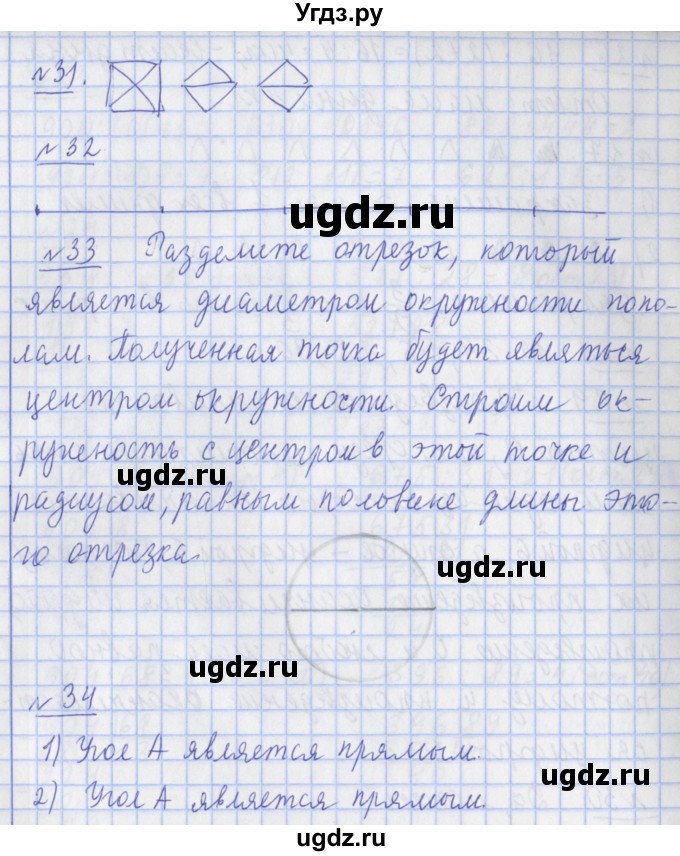 Угдз.ру
№31.
№32
ugdz.ru
№33 Разделите отрезок, который
является диаметром окружности попо-
лам. Полученная точка будет являться
центром окружности. Строим ок-
ружность с центром в этой точке и
ugdz.ru
радиусом, равным половине длины это-
ugdz.ru
го отрезка.
ugdz.ru
ugdz.ru
№34
1) Угол А является прямым.
ugdz.ru
2) Угол А является прямым.
ugdz.ru